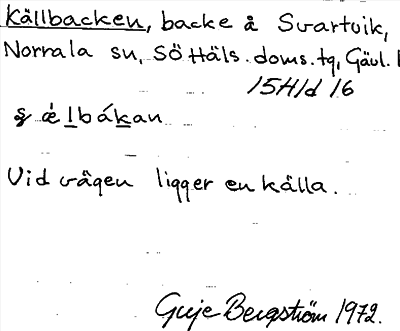 Källbacken, backe å Svartvik,
Norrala sn, SÖ Häls. doms. tg, Gävl. l
15H1d 16
Vid vägen ligger en källa.
Guje Bergström 1972.